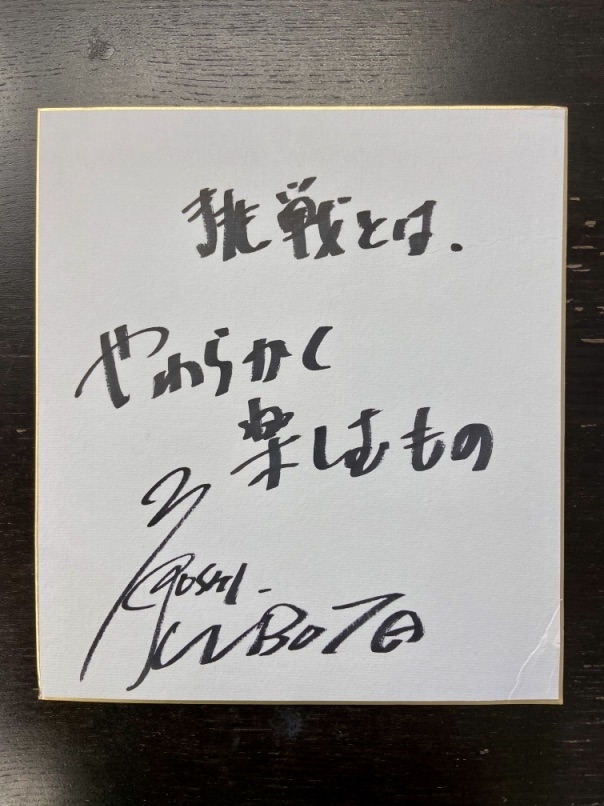 挑戦とは.
やわらかく
楽しむもの
KUBOTA